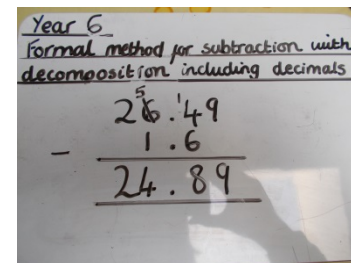 Year 6
Formal method for subtraction with
decomposition including decimals
5 1
26.49
- 1.6
24.89